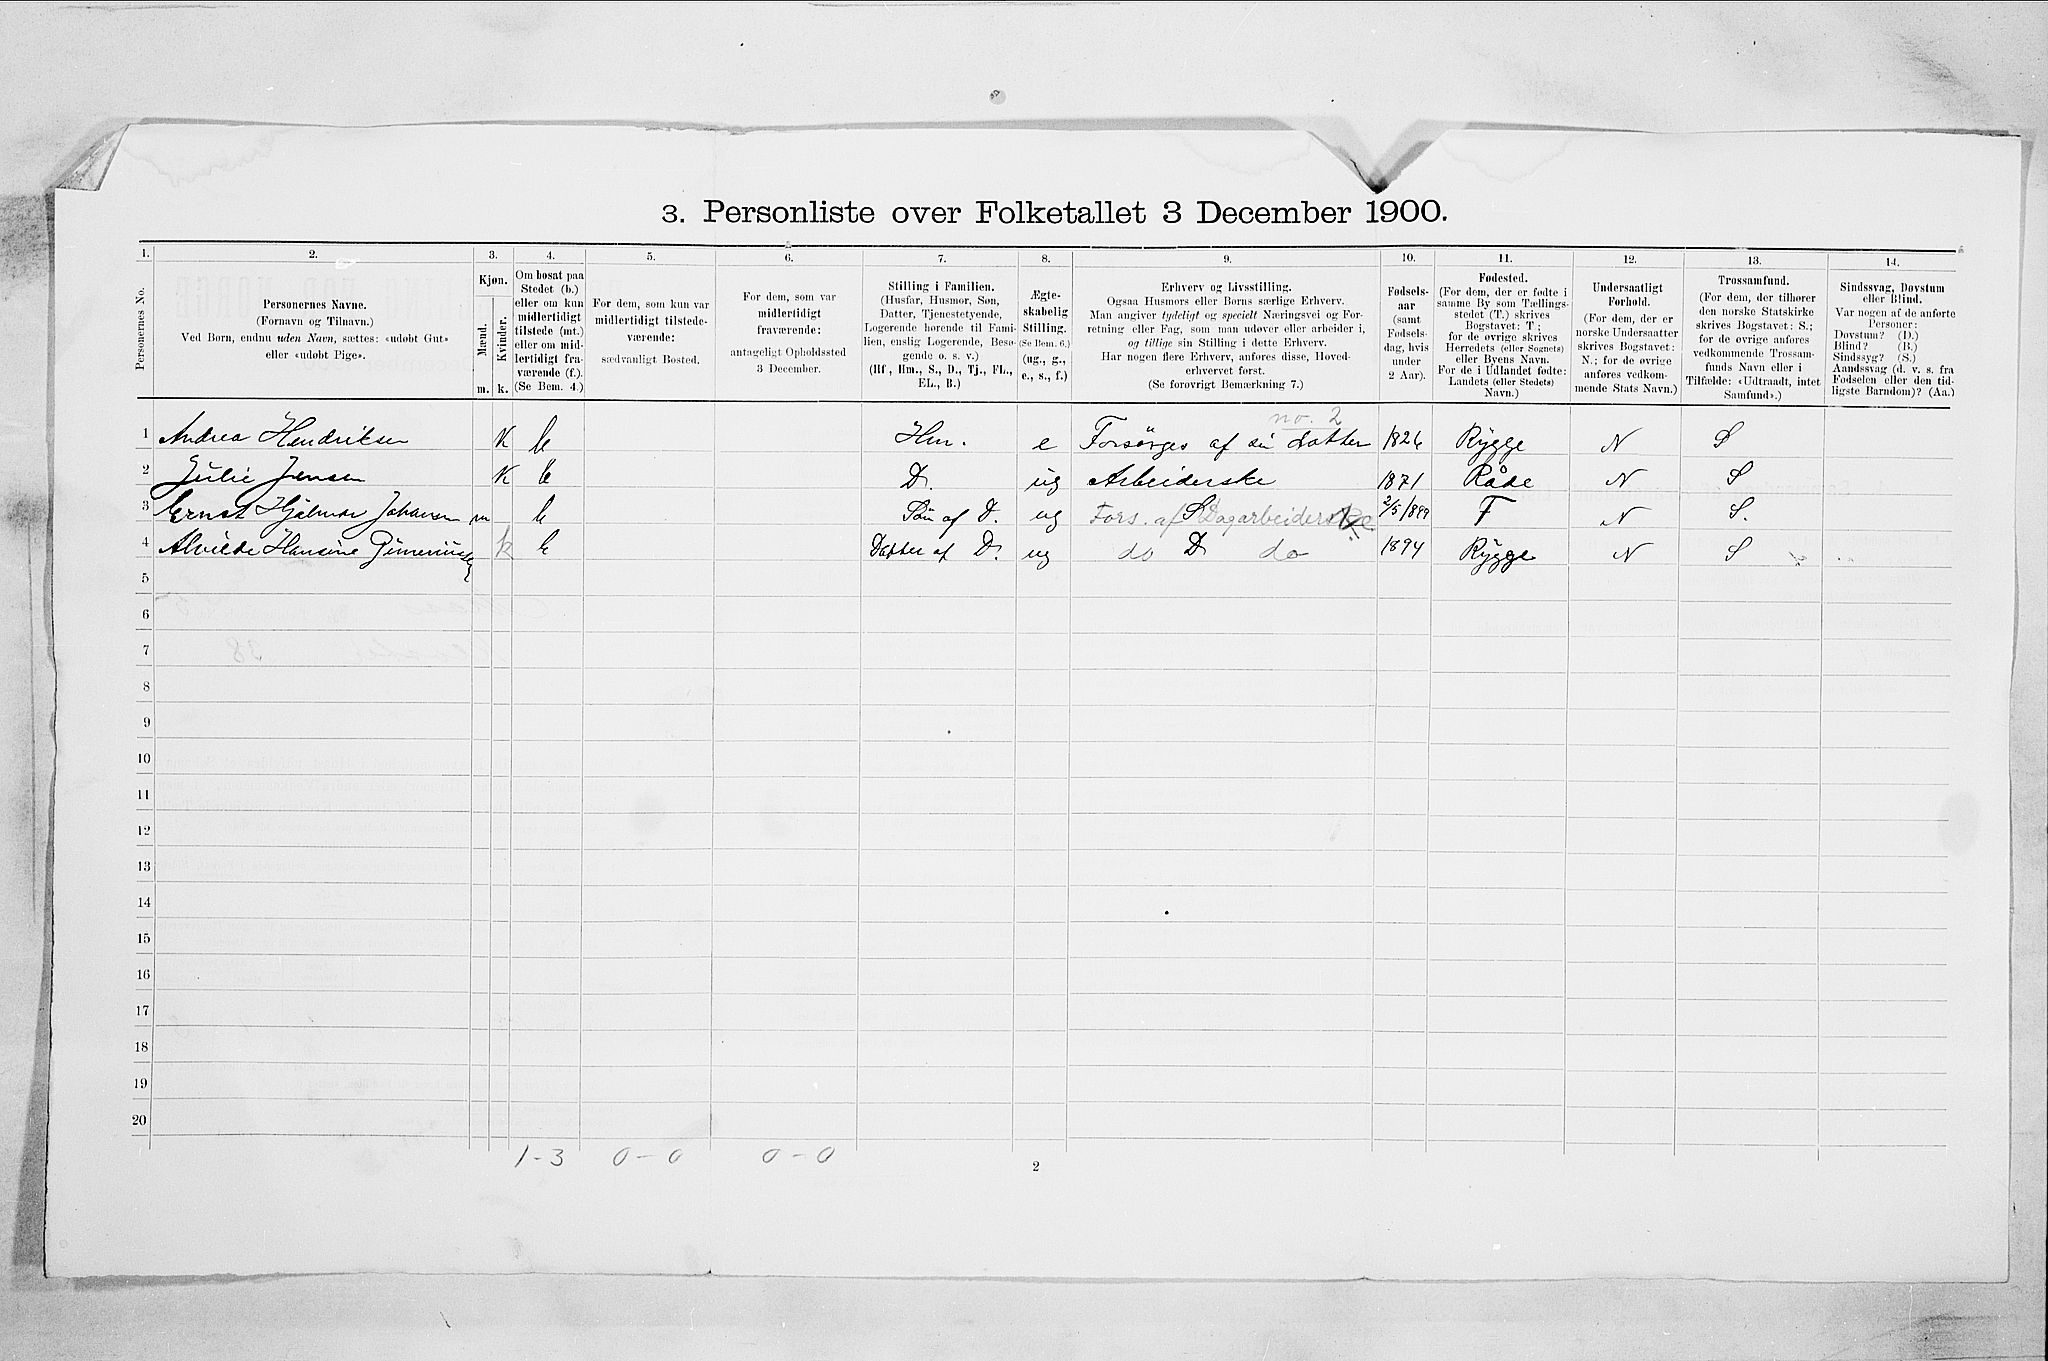 3. Personliste over Folketallet 3 December 1900.
1. 2. 3. 4. 5. 6. 7. 8. 9. 10. 11. 12. 13. 14.
Personernes No.
Personernes Navne.
(Fornavn og Tilnavn.)
Ved Børn, endnu uden Navn, sættes: «udøbt Gut»
eller «udøbt Pige».
Kjøn.
Mænd.
Kvinder.
m. k.
Om bosat paa
Stedet (b.)
eller om kun
midlertidigt
tilstede (mt.)
eller om mid-
lertidigt fra-
værende (f.).
(Se Bem. 4.)
For dem, som kun var
midlertidigt tilstede-
værende:
sædvanligt Bosted.
For dem, som var
midlertidigt
fraværende:
antageligt Opholdssted
3 December.
Stilling i Familien.
(Husfar, Husmor, Søn,
Datter, Tjenestetyende,
Logerende hørende til Fami-
lien, enslig Logerende, Besø-
gende o. s. v.)
(Hf, Hm., S., D., Tj., FL.,
EL., B.)
Ægte-
skabelig
Stilling.
(Se Bem. 6.)
(ug., g.,
e., s., f.)
Erhverv og Livsstilling.
Ogsaa Husmors eller Børns særlige Erhverv.
Man angiver tydeligt og specielt Næringsvei og For-
retning eller Fag, som man udøver eller arbeider i,
og tillige sin Stilling i dette Erhverv.
Har nogen flere Erhverv, anføres disse, Hoved-
erhvervet først.
(Se forøvrigt Bemærkning 7.)
Fødsels-
aar
(samt
Fødsels-
dag, hvis
under
2 Aar).
Fødested.
(For dem, der er fødte i
samme By som Tællings-
stedet (T.) skrives
Bogstavet: T;
for de øvrige skrives
Herredets (eller Sognets)
eller Byens Navn.
For de i Udlandet fødte:
Landets (eller Stedets)
Navn.)
Undersaatligt
Forhold.
(For dem, der er
norske Undersaatter
skrives Bogstavet:
N.; for de øvrige
anføres vedkom-
mende Stats Navn.)
Trossamfund.
(For dem, der tilhører
den norske Statskirke
skrives Bogstavet: S.;
for de øvrige anføres
vedkommende Trossam-
funds Navn eller i
Tilfælde: «Udtraadt, intet
Samfund».)
Sindssvag, Døvstum
eller Blind.
Var nogen af de anførte
Personer:
Døvstum? (D.)
Blind? (B.)
Sindssyg? (S.)
Aandssvag (d. v. s. fra
Fødselen eller den tid-
ligste Barndom)? (Aa.)
no. 2
1 Andrea Hendriksen K b Hm. e Forsörges af sin datter 1826 Rygge N S
2 Julie Jensen K b D. ug Arbeiderske 1871 Råde N S
3 Ernst Hjalmar Johansen m b Sön af D. ug Fors. af S Dagarbeiderske 2/5 1899 T N S.
4 Alvilde Hansine k b Datter af D. ug do D do 1894 Rygge N S
5
6
7
8
9
10
11
12
13
14
15
16
17
18
19
20
1-3 0-0 0-0
2